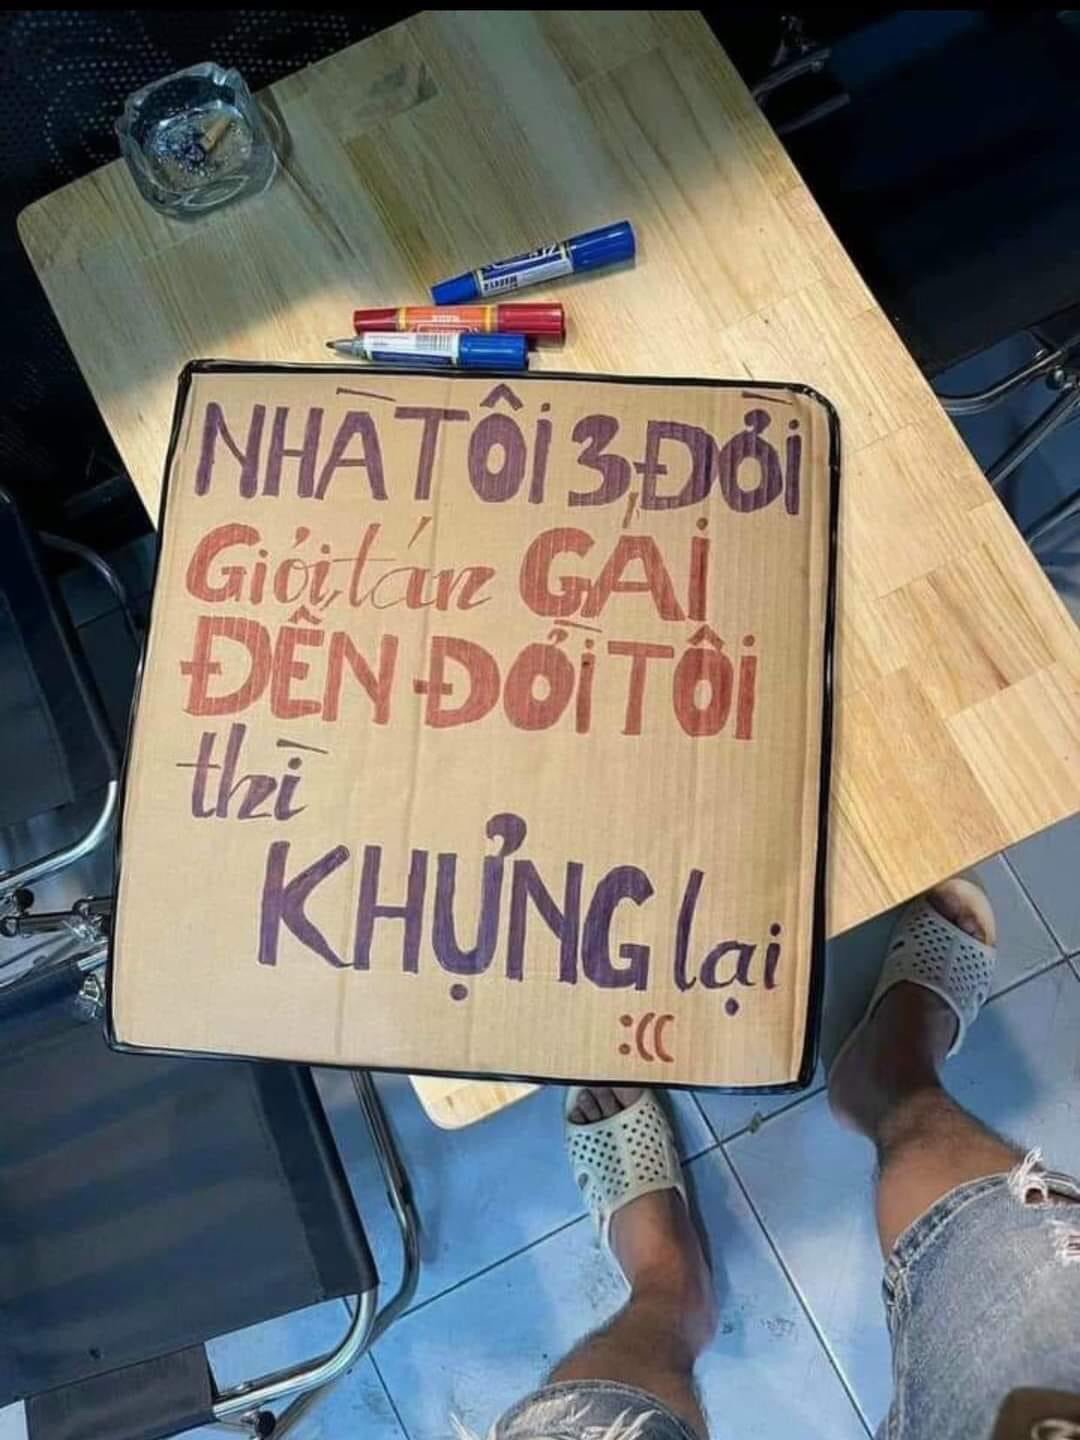 NHÀ TÔI 3 ĐỜI
Giỏi tán GÁI
ĐẾN ĐỜI TÔI
thì
KHỰNG lại
:((